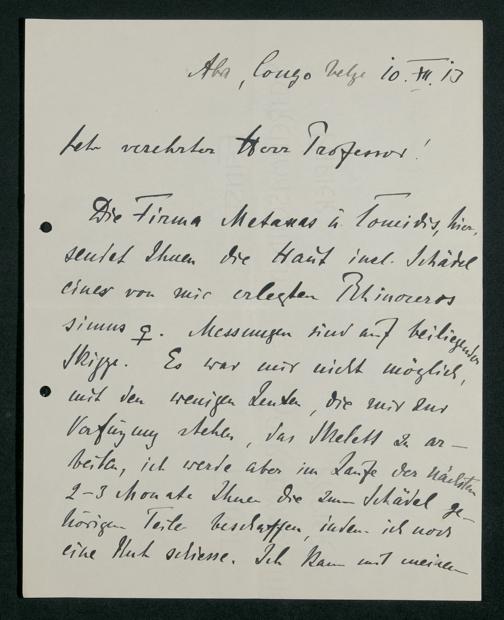 Aba, Congo belge 10. XII. 13
Sehr verehrter Herr Professor!
Die Firma Metaxas u. Tomidis, hier,
sendet Ihnen die Haut incl. Schädel
eines von mir erlegten Rhinoceros
simus ♀. Messungen sind auf beiliegender
Skizze. Es war mir nicht möglich,
mit den wenigen Leuten, die mir zur
Verfügung stehen, das Skelett zu ar-
beiten, ich werde aber im Laufe der nächsten
2-3 Monate Ihnen die zum Schädel ge-
hörigen Teile beschaffen, indem ich noch
eine Kuh schiesse. Ich kann mit meinen